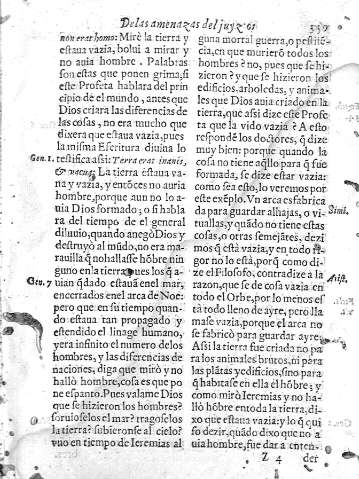 De las amenazas del juyzio. 359
non erat homo: Mirè la tierra y
estaua vazia, bolui a mirar y
no auia hombre. Palabras
son estas que ponen grima; si
este Profeta hablara del prin-
cipio de el mundo, antes que
Dios criara las diferencias de
las cosas, no era mucho que
dixera que estaua vazia, pues
la misma Escritura diuina lo
Gen. 1. testifica assi: Terra erat inanis,
& vacua: La tierra estaua va-
na y vazia, y entõces no auia
hombre, porque aun no lo a-
uia Dios formado; o si habla
ra del tiempo de el general
diluuio, quando anegò Dios y
destruyò al mũdo, no era ma-
rauilla q̃ no hallasse hõbre nin
guno en la tierra, pues los q̃ a-
Gen. 7 uian q̃dado estauã en el mar,
encerrados en el arca de Noe:
pero que en tiempo quan-
do estaua tan propagado y
estendido el linage humano,
y era infinito el numero de los
hombres, y las diferencias de
naciones, diga que mirò y no
hallò hombre, cosa es que po
ne espanto. Pues valame Dios
que se hizieron los hombres?
soruioselos el mar? tragoselos
la tierra? subieronse al cielo?
vuo en tiempo de Ieremias al
guna mortal guerra, o pestilẽ-
cia, en que murierõ todos los
hombres? no, pues que se hi-
zieron? y que se hizieron los
edificios, arboledas, y anima-
les que Dios auia criado en la
tierra, que assi dize este Profe
ta que la vido vazia? A esto
responde los doctores, q̃ dize
muy bien: porque quando la
cosa no tiene aq̃llo para q̃ fue
formada, se dize estar vazia:
como sea esto, lo veremos por
este exẽplo. Vn arca es fabrica Simi.
da para guardar alhajas, o vi-
tuallas, y quãdo no tiene estas
cosas, o otras semejãtes, dezi
mos q̃ està vazia, y en todo ri-
gor no lo està, porq̃ como di-
ze el Filosofo, contradize a la Arist.
razon, que se de cosa vazia en
todo el Orbe, por lo menos es
tà todo lleno de ayre, pero lla
mase vazia, porque el arca no
se fabricò para guardar ayre.
Assi la tierra fue criada no pa
ra los animales brutos, ni para
las plãtas y edificios, sino para
q̃ habitase en ella el hõbre; y
como mirò Ieremias y no ha-
llò hõbre en toda la tierra, di-
xo que estaua vazia: y lo q̃ qui
so dezir, quãdo dixo que no a
uia hombre, fue dar a enten-
Z 4 der